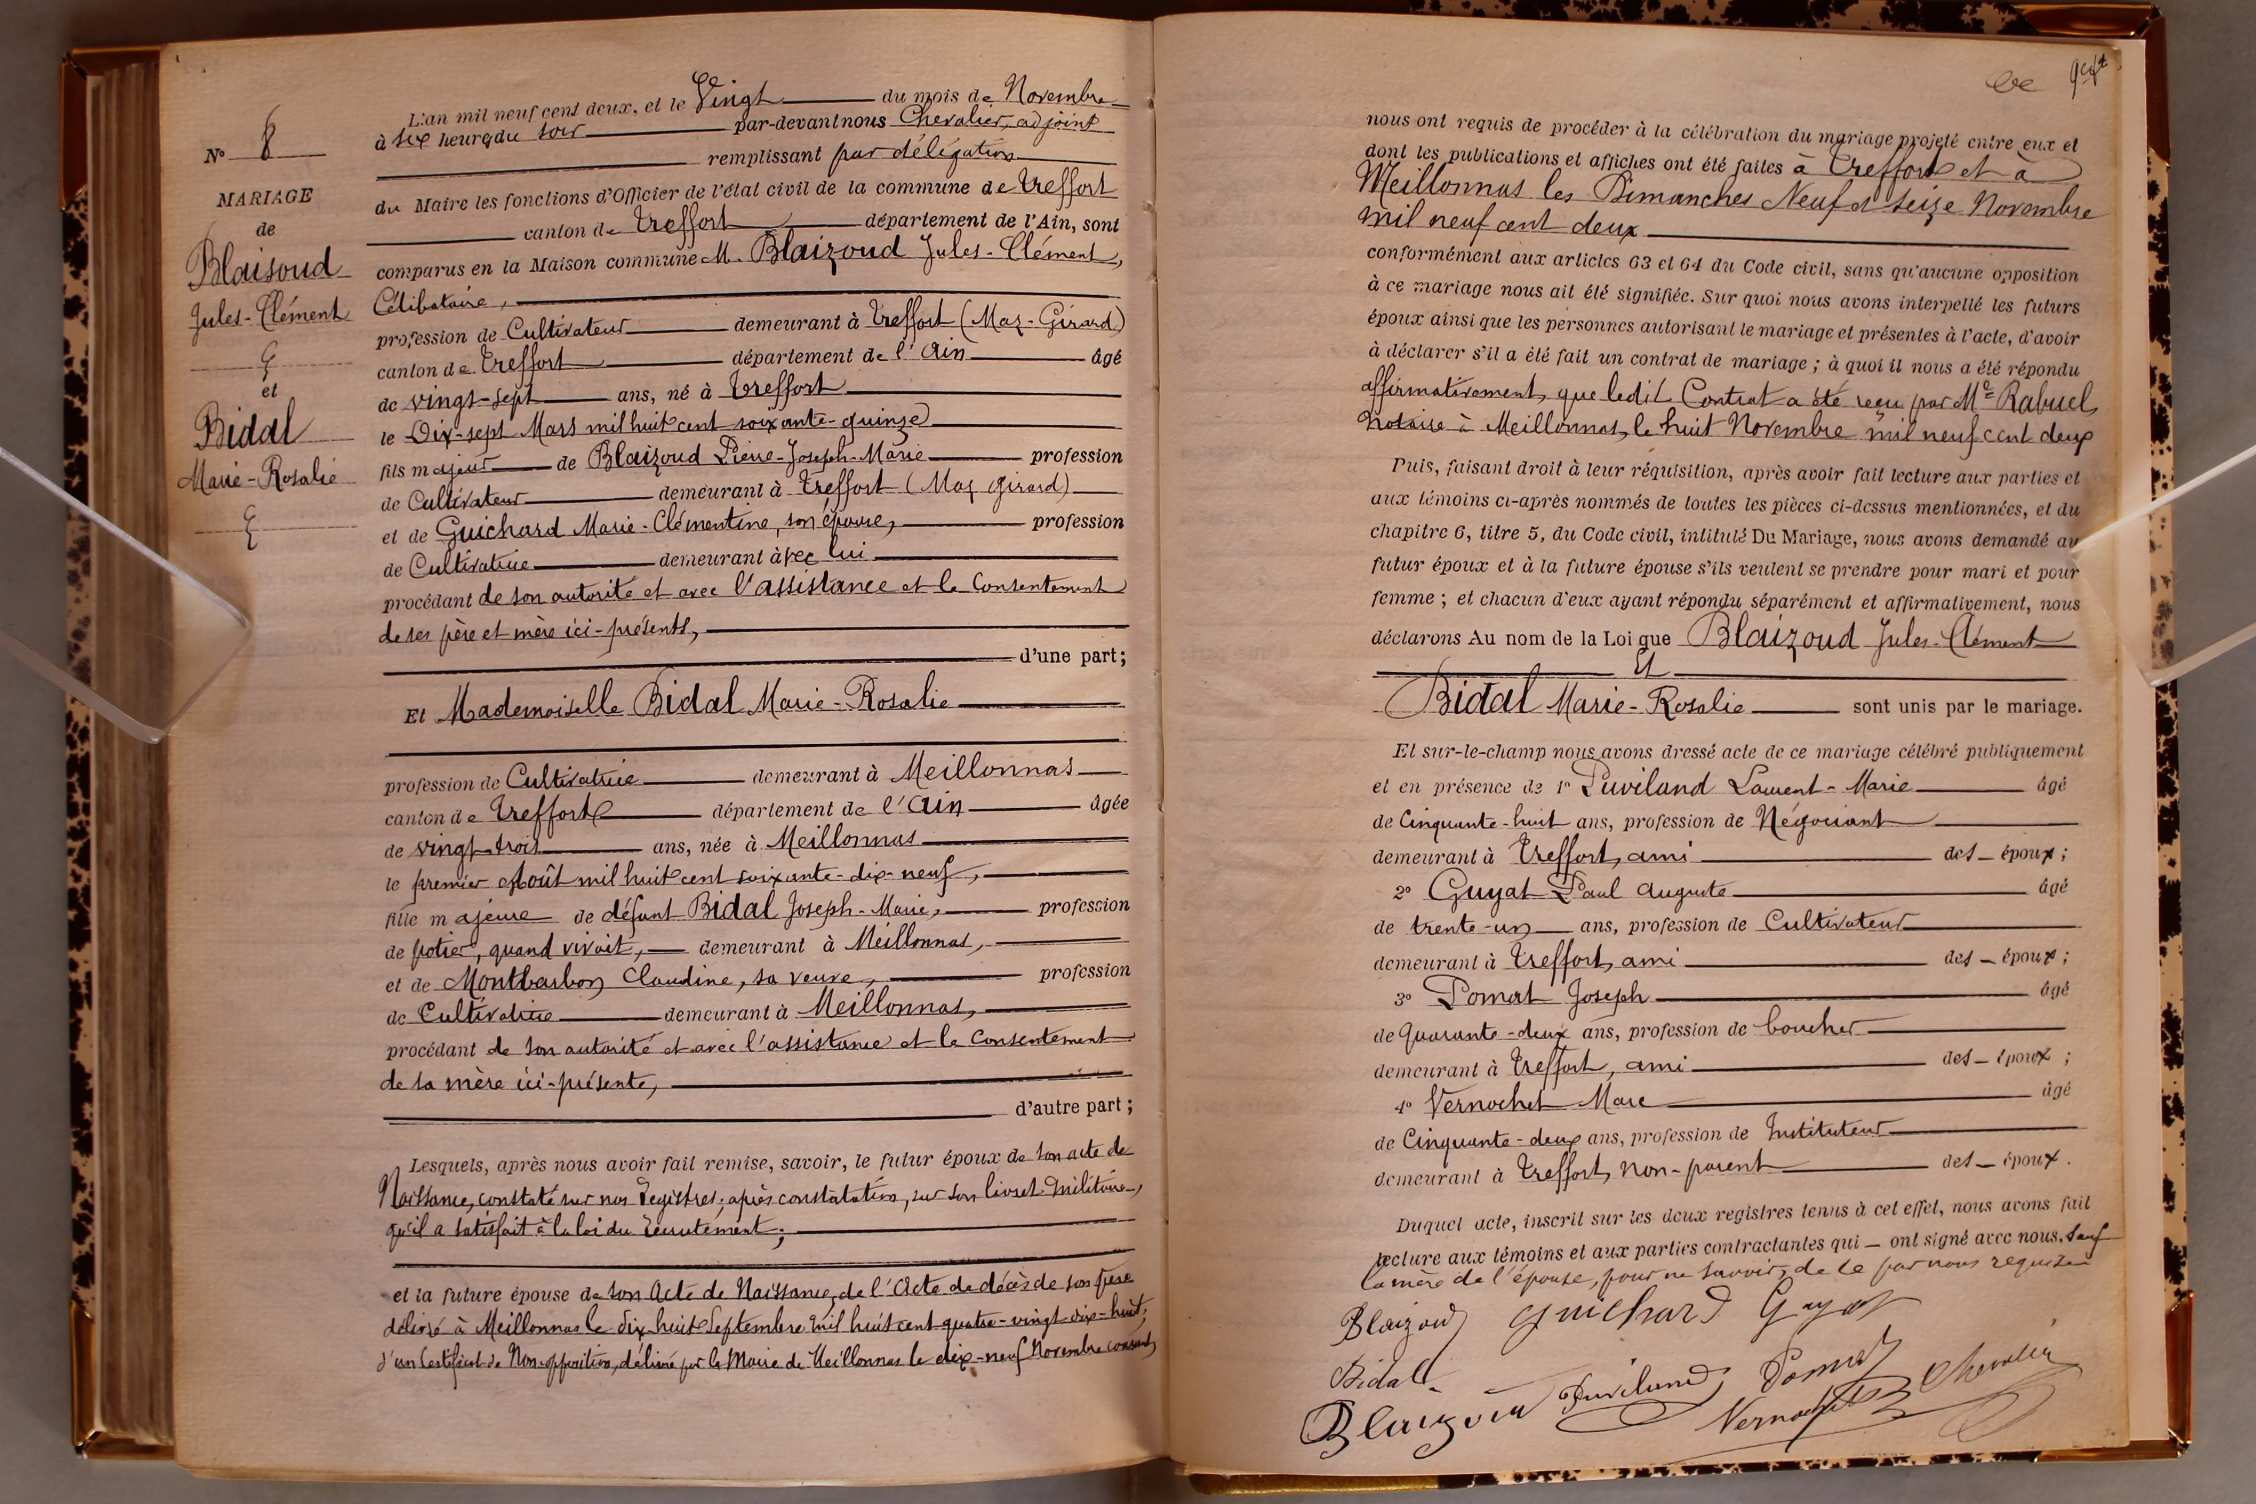 N° 8
MARIAGE
de
Blaisoud
Jules-Clément
et
Bidal
Marie-Rosalie
L'an mil neuf cent deux, et le Vingt du mois de Novembre
à six heures du soir par-devant nous Chevalier, adjoint
remplissant par délégation
du Maire les fonctions d'Officier de l'état civil de la commune de Treffort
canton de Treffort département de l'Ain, sont
comparus en la Maison commune M. Blaizoud Jules-Clément,
Célibataire,
profession de Cultivateur demeurant à Treffort (Maz-Girard)
canton de Treffort département de l'Ain âgé
de vingt-sept ans, né à Treffort
le Dix-sept Mars mil huit cent soixante-quinze
fils majeur de Blaizoud Pierre-Joseph-Marie profession
de Cultivateur demeurant à Treffort (Maz Girard)
et de Guichard Marie-Clémentine, son épouse, profession
de Cultivatrice demeurant avec lui
procédant de son autorité et avec l'assistance et le Consentement
de ses père et mère ici-présents,
d'une part;
Et Mademoiselle Bidal Marie-Rosalie
profession de Cultivatrice demeurant à Meillonnas
canton de Treffort département de l'Ain âgée
de vingt-trois ans, née à Meillonnas
le premier Août mil huit cent soixante-dix-neuf,
fille majeure de défunt Bidal Joseph-Marie, profession
de potier, quand vivait, demeurant à Meillonnas,
et de Montbarbon Claudine, sa veuve, profession
de Cultivatrice demeurant à Meillonnas,
procédant de son autorité et avec l'assistance et le Consentement
de sa mère ici-présente,
d'autre part;
Lesquels, après nous avoir fait remise, savoir, le futur époux de son acte de
Naissance, constaté sur nos Registres; après constatation, sur son livret militaire,
qu'il a satisfait à la loi du recrutement;
et la future épouse de son Acte de Naissance, de l'Acte de décès de son père
délivré à Meillonnas le dix-huit Septembre mil huit cent quatre-vingt-dix-huit;
d'un Certificat de Non-opposition, délivré par le Maire de Meillonnas le dix-neuf Novembre courant
nous ont requis de procéder à la célébration du mariage projeté entre eux et
dont les publications et affiches ont été faites à Treffort et à
Meillonnas les Dimanches Neuf et Seize Novembre
mil neuf cent deux
conformément aux articles 63 et 64 du Code civil, sans qu'aucune opposition
à ce mariage nous ait été signifiée. Sur quoi nous avons interpellé les futurs
époux ainsi que les personnes autorisant le mariage et présentes à l'acte, d'avoir
à déclarer s'il a été fait un contrat de mariage; à quoi il nous a été répondu
affirmativement, que ledit Contrat a été reçu par Me Rabuel,
Notaire à Meillonnas, le huit Novembre mil neuf cent deux
Puis, faisant droit à leur réquisition, après avoir fait lecture aux parties et
aux témoins ci-après nommés de toutes les pièces ci-dessus mentionnées, et du
chapitre 6, titre 5, du Code civil, intitulé Du Mariage, nous avons demandé au
futur époux et à la future épouse s'ils veulent se prendre pour mari et pour
femme; et chacun d'eux ayant répondu séparément et affirmativement, nous
déclarons Au nom de la Loi que Blaizoud Jules-Clément
Et
Bidal Marie-Rosalie sont unis par le mariage.
Et sur-le-champ nous avons dressé acte de ce mariage célébré publiquement
et en présence de 1° Puviland Laurent-Marie âgé
de Cinquante-huit ans, profession de Négociant
demeurant à Treffort, ami des époux;
2° Guyat Paul Auguste âgé
de trente-un ans, profession de Cultivateur
demeurant à Treffort, ami des époux;
3° Pomat Joseph âgé
de quarante-deux ans, profession de boucher
demeurant à Treffort, ami des époux;
4° Vernochet Marc âgé
de Cinquante-deux ans, profession de Instituteur
demeurant à Treffort, non-parent des époux.
Duquel acte, inscrit sur les deux registres tenus à cet effet, nous avons fait
lecture aux témoins et aux parties contractantes qui ont signé avec nous, sauf
la mère de l'épouse, pour ne savoir, de ce par nous requise
Blaizoud Guichard Guyat
Bidal Puviland Pomat Chevalier
Blaizoud Vernochet